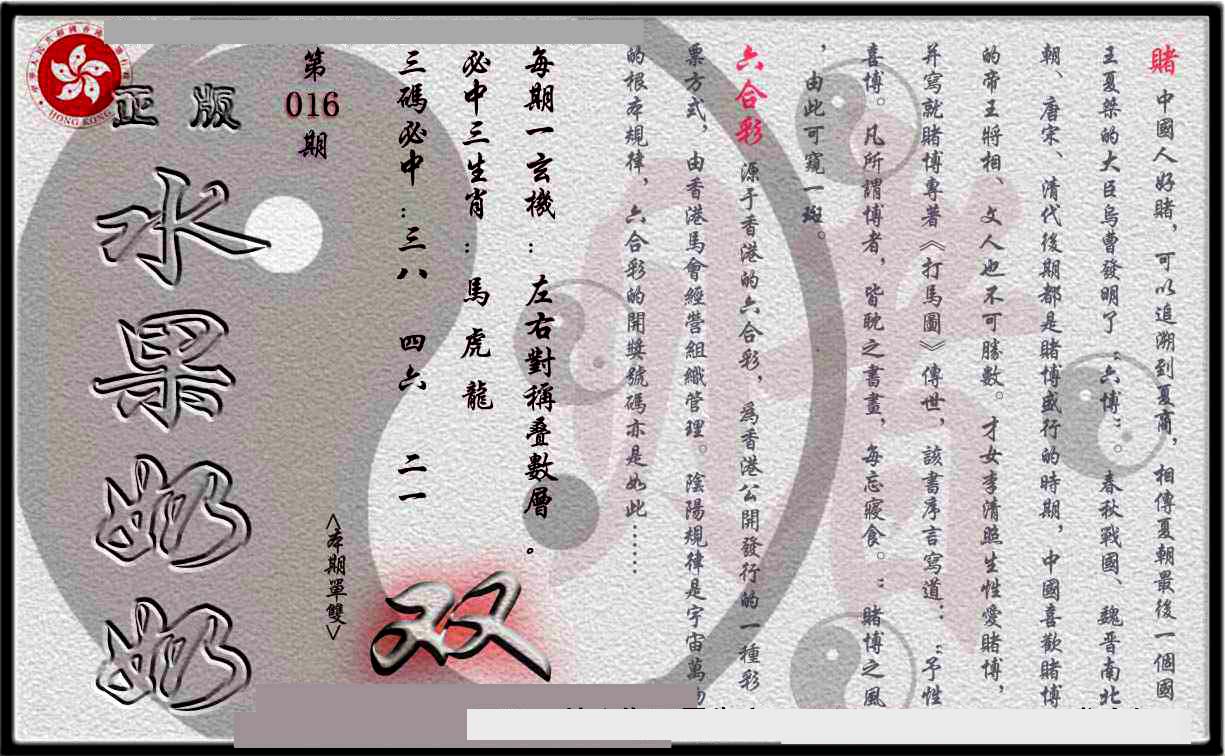 賭 中國人好賭，可以追溯到夏商，相傳夏朝最後一個國
王夏桀的大臣烏曹發明了“六博”。春秋戰國、魏晋南北
朝、唐宋、清代後期都是賭博盛行的時期，中國喜歡賭博
的帝王將相、文人也不可勝數。才女李清照生性愛賭博，
并寫就賭博專著《打馬圖》傳世，該書序言寫道：“予性
喜博。凡所謂博者，皆耽之書畫，每忘寢食。”賭博之風
，由此可窺一斑。
六合彩 源于香港的六合彩，爲香港公開發行的一種彩
票方式，由香港馬會經營組織管理。陰陽規律是宇宙萬物
的根本規律，六合彩的開獎號碼亦是如此……
每期一玄機：左右對稱叠數層。
必中三生肖：馬 虎 龍
三碼必中：三八 四六 二一
第
016
期
<本期單雙>
双
正版
水果奶奶
HONG KONG